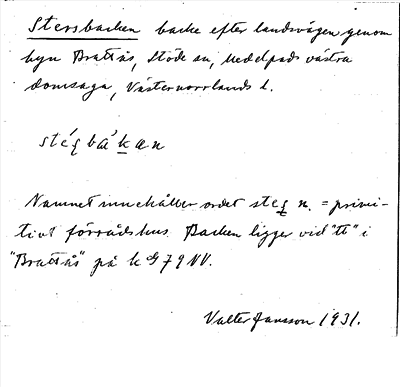 Stersbacken backe efter landsvägen genom
byn Brattås, Stöde sn, Medelpads västra
domsaga, Västernorrlands l.
Namnet innehåller ordet n. = primi-
tivt förrådshus Backen ligger vid "tt" i
"Brattås" på k G79NV.
Valter Jansson 1931.